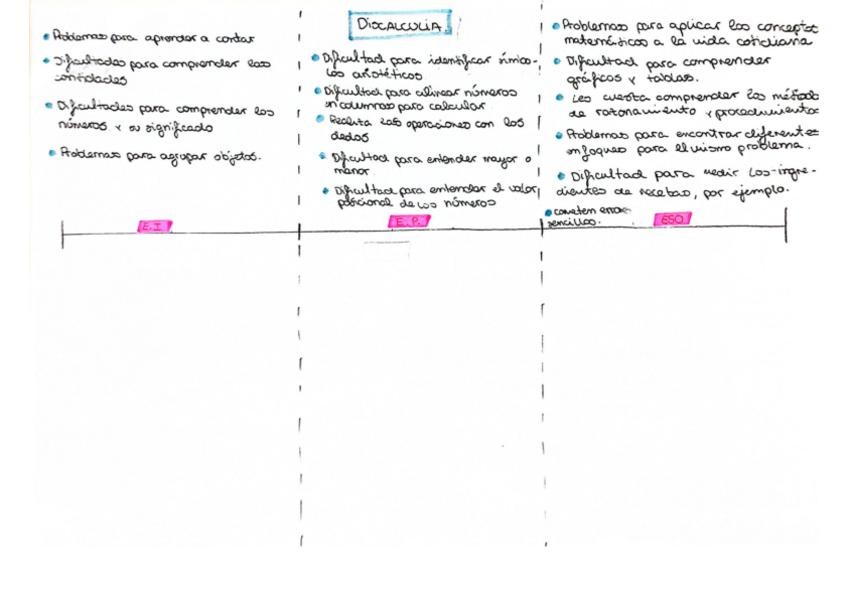 DISCALCULIA
Problemas para aprender a contar
Dificultades para comprender las
cantidades
Dificultades para comprender los
números y su significado
Problemas para agrupar objetos.
E.I
Dificultad para identificar símbo-
los aritméticos
Dificultad para alinear números
en columnas para calcular
Realiza las operaciones con los
dedos
Dificultad para entender mayor o
menor
Dificultad para entender el valor
posicional de los números
E.P.
Problemas para aplicar los conceptos
matemáticos a la vida cotidiana
Dificultad para comprender
gráficos y tablas.
Les cuesta comprender los métodos
de razonamiento y procedimientos
Problemas para encontrar diferentes
enfoques para el mismo problema.
Dificultad para medir los ingre-
dientes de recetas, por ejemplo.
cometen errores
sencillos.
ESO